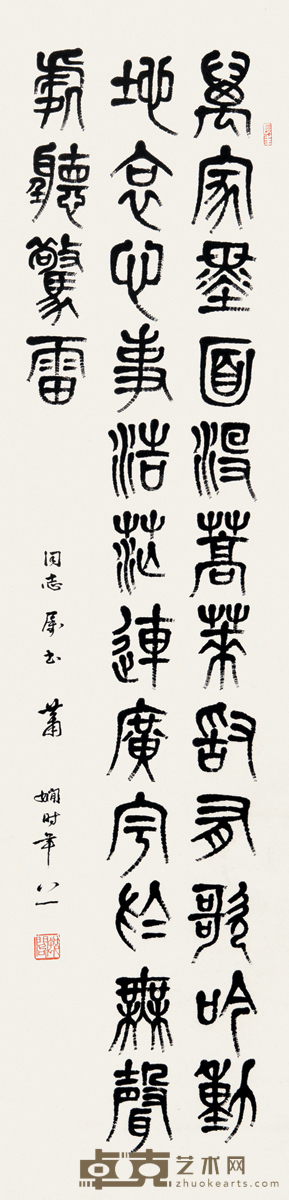 萬家墨面沒蒿萊敢有歌吟動
地哀心事浩茫連廣宇於無聲
處聽驚雷
同志屬书 蕭
嫻时年八一
卓克艺术网
zhuokearts.com